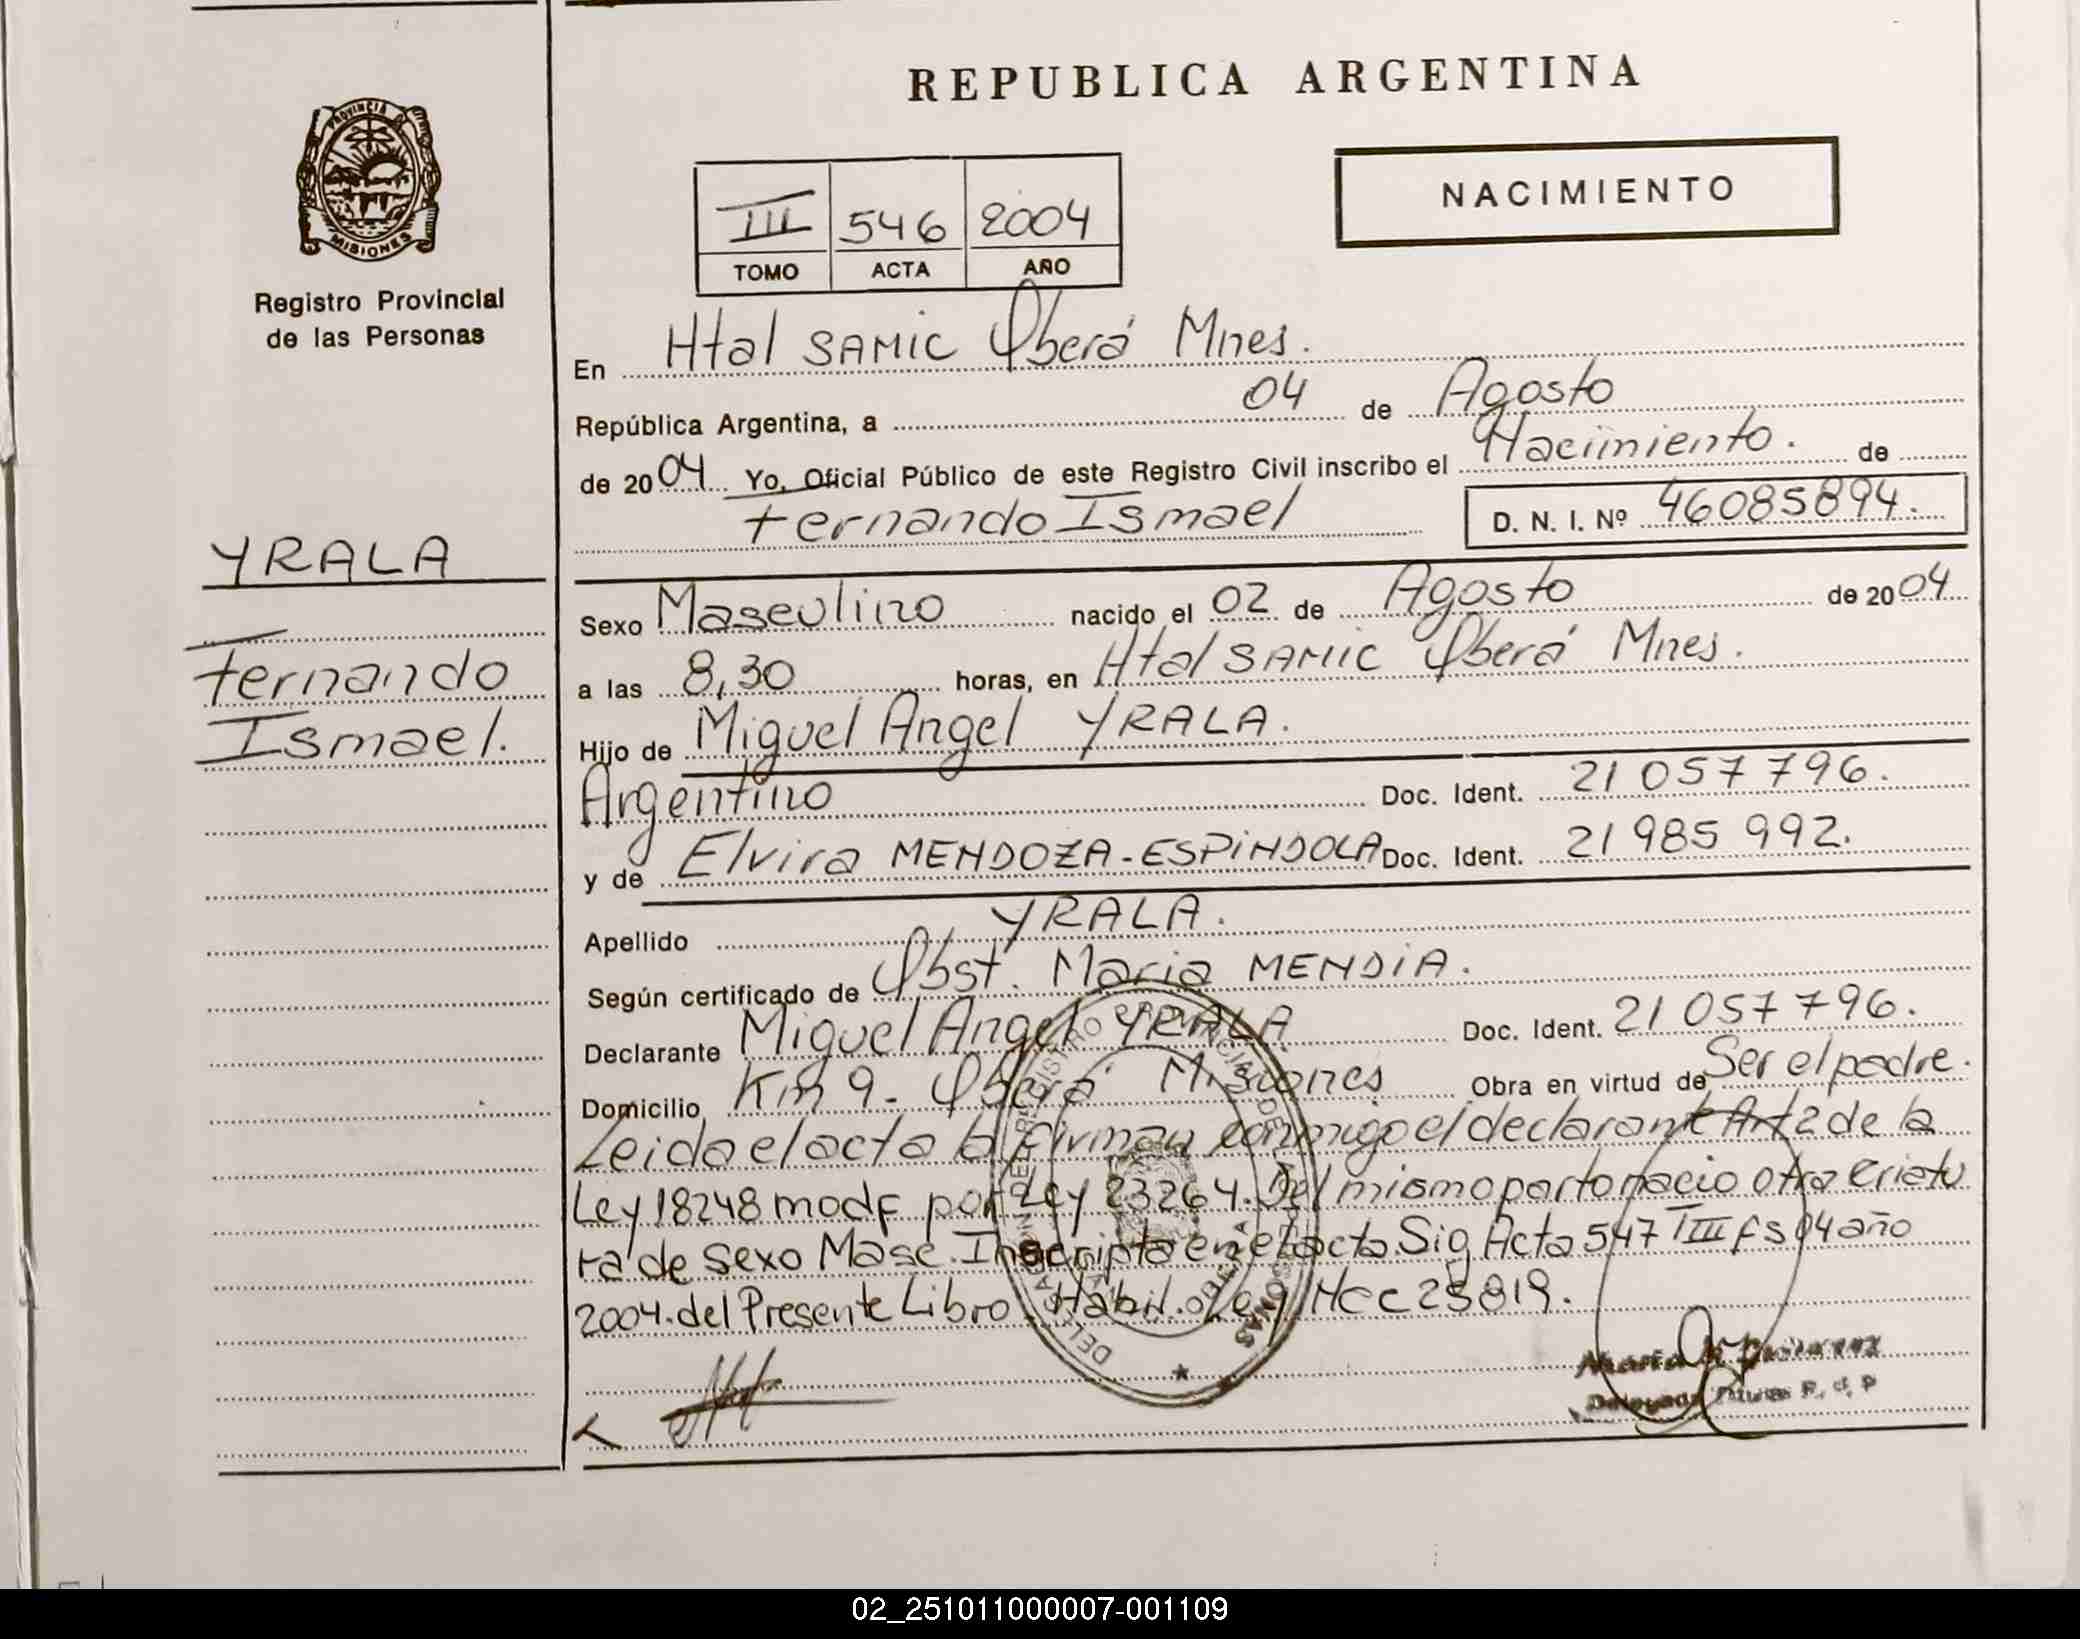 REPUBLICA ARGENTINA
PROVINCIA DE
MISIONES
Registro Provincial
de las Personas
NACIMIENTO
III 546 2004
TOMO ACTA AÑO
En Htal SAMIC Oberá Mnes.
República Argentina, a 04 de Agosto
de 2004 Yo, Oficial Público de este Registro Civil inscribo el Nacimiento. de
Fernando Ismael D. N. I. Nº 46085894.
YRALA
Fernando
Ismael.
Sexo Masculino nacido el 02 de Agosto de 2004
a las 8,30 horas, en Htal SAMIC Oberá Mnes.
Hijo de Miguel Angel YRALA.
Argentino Doc. Ident. 21 057 796.
y de Elvira MENDOZA-ESPINDOLA Doc. Ident. 21 985 992.
Apellido YRALA.
Según certificado de Obst. Maria MENDIA.
Declarante Miguel Angel YRALA Doc. Ident. 21 057 796.
Domicilio Km 9- Oberá Misiones Obra en virtud de Ser el padre.
Leida el acta la firman conmigo el declarante Art 2 de la
Ley 18248 modf por Ley 23264. Del mismo parto nacio otra criatu
ra de sexo Masc. Inscripta en el acta Sig Acta 547 TIII fs 04 año
2004. del Presente Libro. Habil. o Leg Nac 25819.
02_251011000007-001109